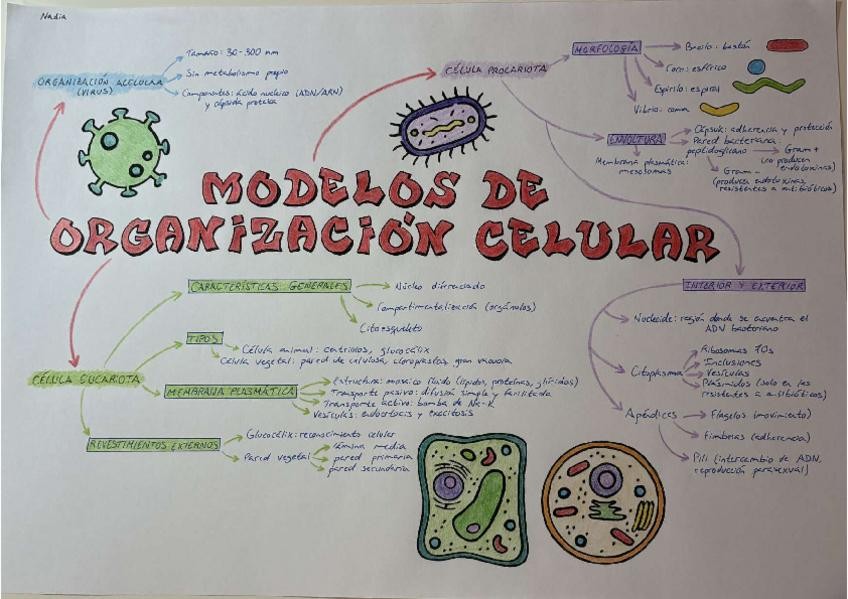 Nadia
MODELOS DE
ORGANIZACIÓN CELULAR
ORGANIZACIÓN ACELULAR
(VIRUS)
Tamaño: 30-300 nm
Sin metabolismo propio
Componentes: ácido nucleico (ADN/ARN)
y cápsida proteica
CÉLULA PROCARIOTA
MORFOLOGÍA
Bacilo: bastón
Coco: esférico
Espirilo: espiral
Vibrio: coma
ENVOLTURA
Cápsula: adherencia y protección
Pared bacteriana:
peptidoglicano
Gram +
(no producen
endotoxinas)
Gram -
(producen endotoxinas,
resistentes a antibióticos)
Membrana plasmática:
mesosomas
INTERIOR Y EXTERIOR
Nucleoide: región donde se encuentra el
ADN bacteriano
Citoplasma
Ribosomas 70s
Inclusiones
Vesículas
Plásmidos (solo en las
resistentes a antibióticos)
Apéndices
Flagelos (movimiento)
Fimbrias (adherencia)
Pili (intercambio de ADN,
reproducción parasexual)
CÉLULA EUCARIOTA
CARACTERÍSTICAS GENERALES
Núcleo diferenciado
Compartimentalización (orgánulos)
Citoesqueleto
TIPOS
Célula animal: centriolos, glucocálix
Célula vegetal: pared de celulosa, cloroplastos, gran vacuola
MEMBRANA PLASMÁTICA
Estructura: mosaico fluido (lípidos, proteínas, glúcidos)
Transporte pasivo: difusión simple y facilitada
Transporte activo: bomba de Na-K
Vesículas: endocitosis y exocitosis
REVESTIMIENTOS EXTERNOS
Glucocálix: reconocimiento celular
Pared vegetal
lámina media
pared primaria
pared secundaria